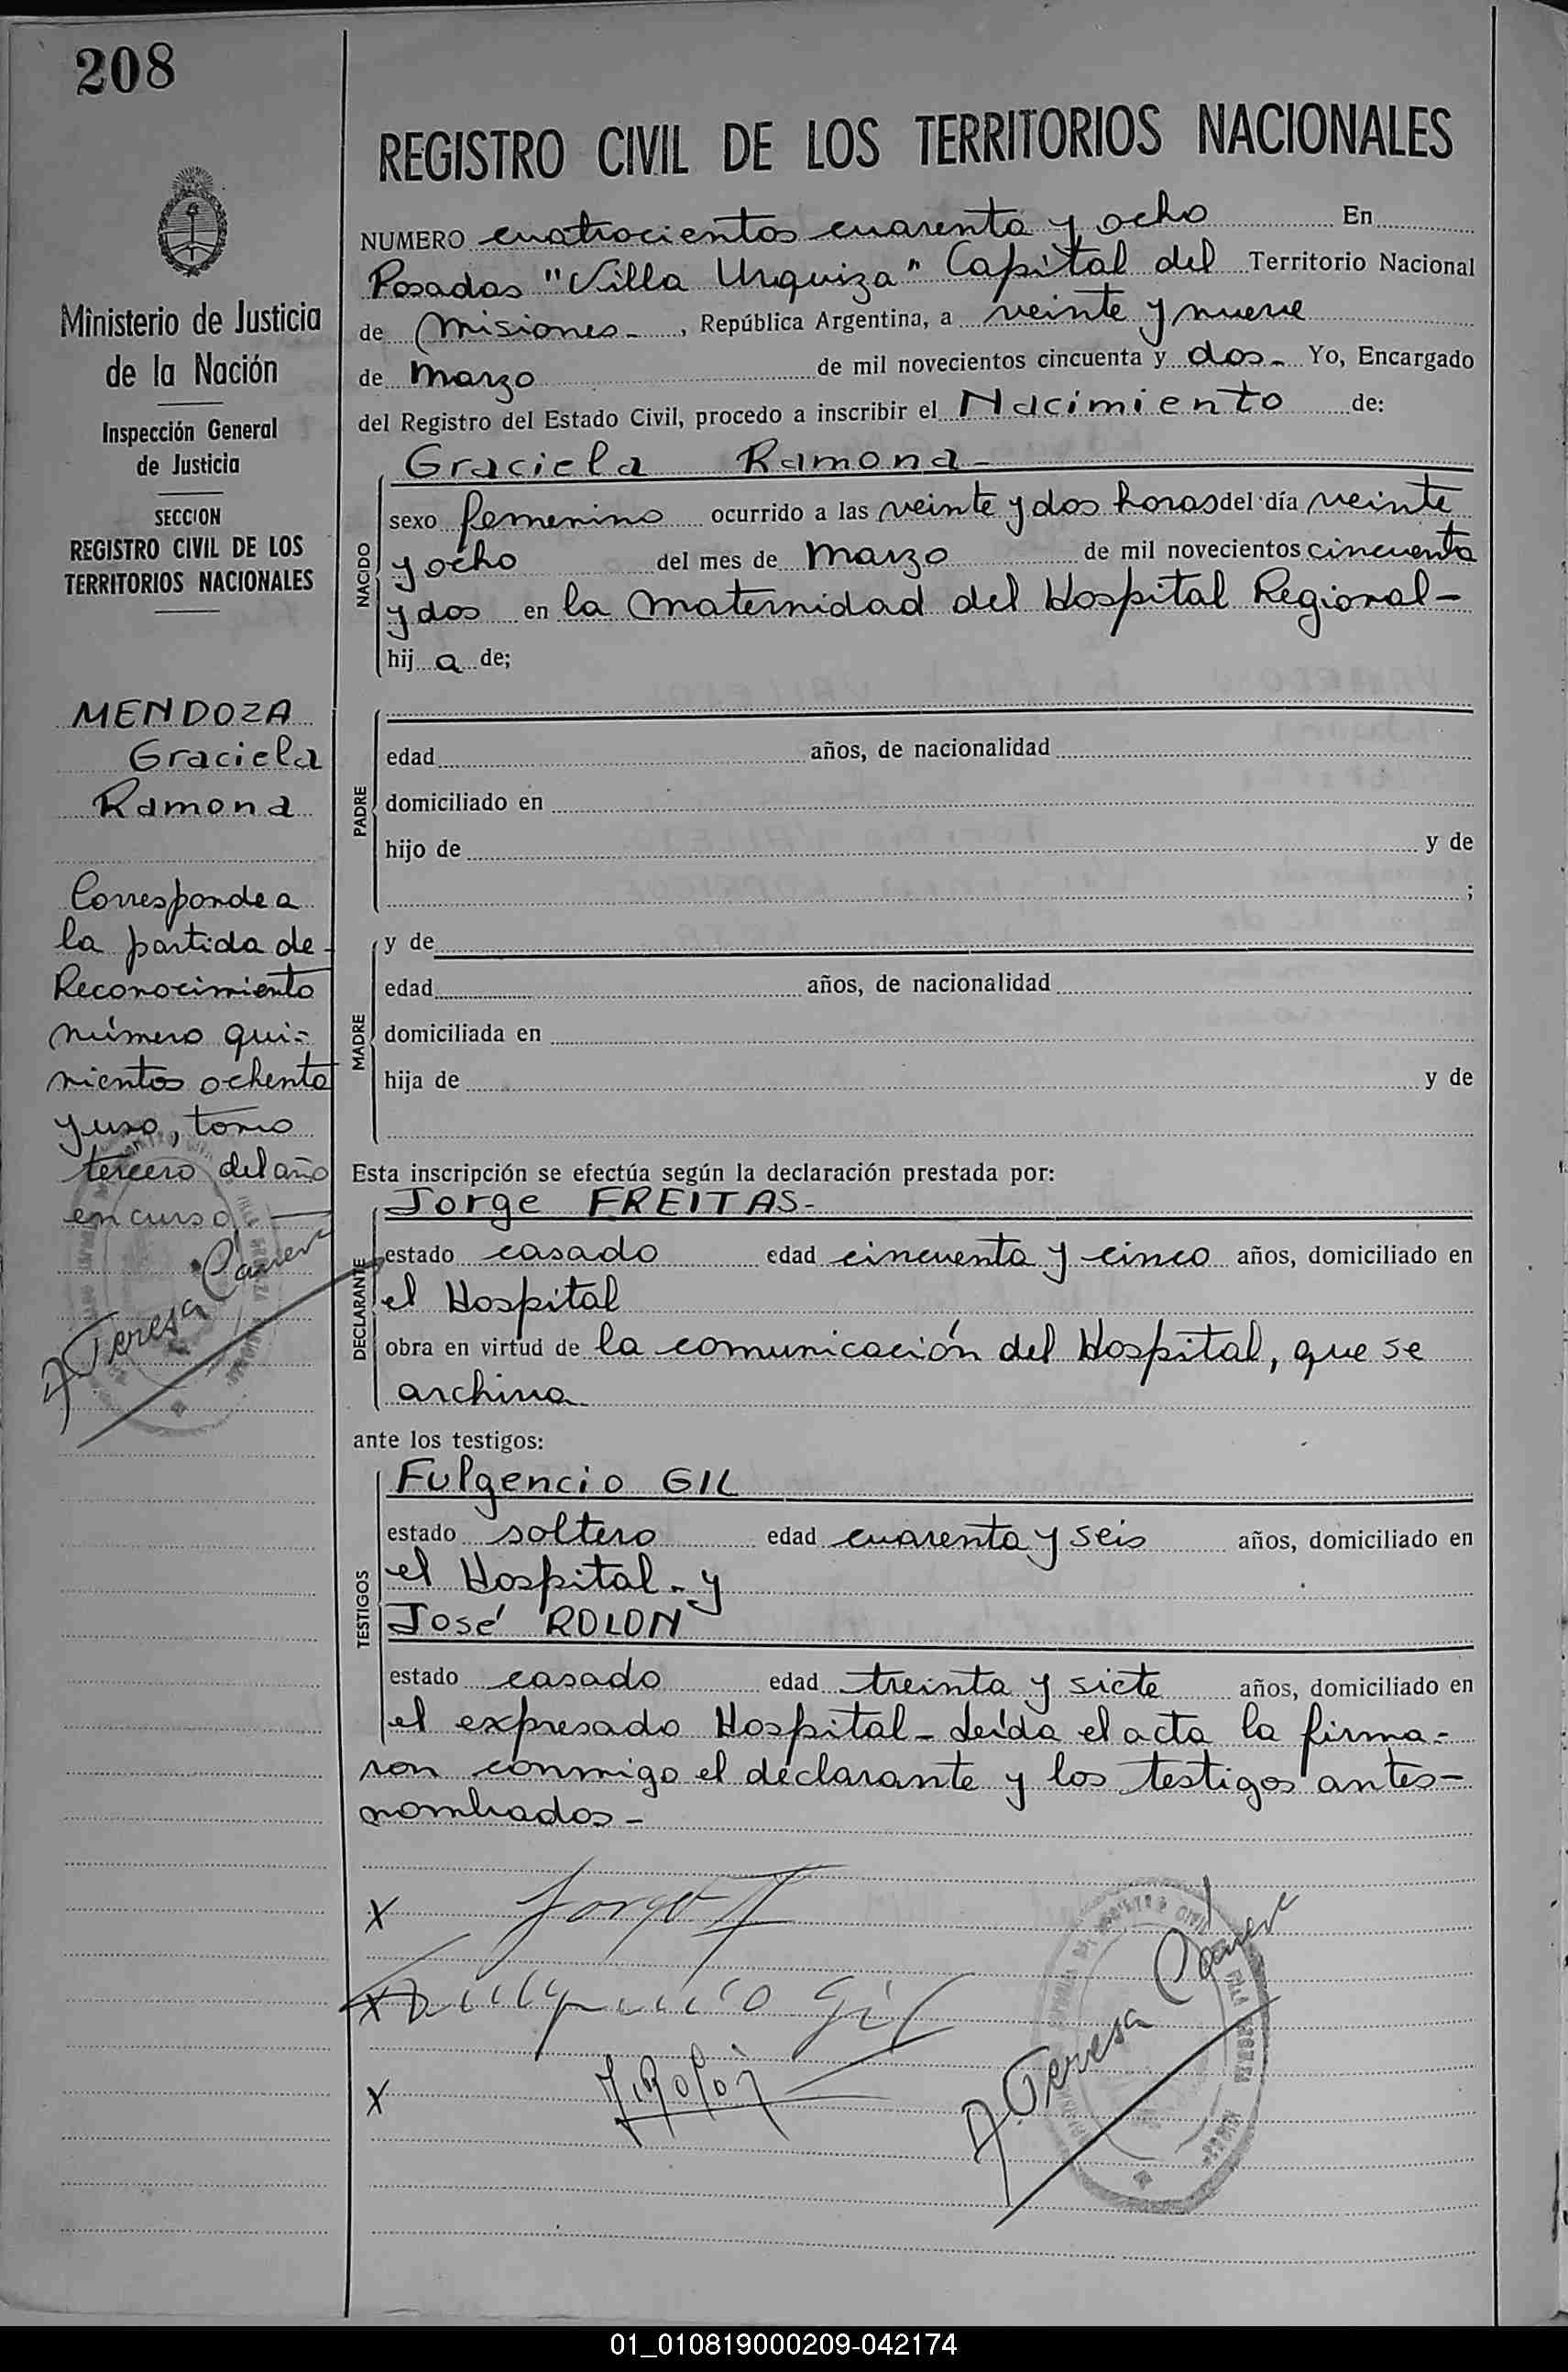 208
REGISTRO CIVIL DE LOS TERRITORIOS NACIONALES
Ministerio de Justicia
de la Nación
Inspección General
de Justicia
SECCION
REGISTRO CIVIL DE LOS
TERRITORIOS NACIONALES
MENDOZA
Graciela
Ramona
Corresponde a
la partida de
Reconocimiento
número qui-
nientos ochenta
y uno, tomo
tercero del año
en curso
A Teresa Cánevа
NUMERO cuatrocientos cuarenta y ocho En
Posadas "Villa Urquiza" Capital del Territorio Nacional
de Misiones-, República Argentina, a veinte y nueve
de Marzo de mil novecientos cincuenta y dos- Yo, Encargado
del Registro del Estado Civil, procedo a inscribir el Nacimiento de:
Graciela Ramona-
NACIDO
sexo femenino ocurrido a las veinte y dos horas del día veinte
y ocho del mes de Marzo de mil novecientos cincuenta
y dos en la Maternidad del Hospital Regional-
hij a de;
PADRE
edad años, de nacionalidad
domiciliado en
hijo de y de
;
MADRE
y de
edad años, de nacionalidad
domiciliada en
hija de y de
Esta inscripción se efectúa según la declaración prestada por:
Jorge FREITAS-
DECLARANTE
estado casado edad cincuenta y cinco años, domiciliado en
el Hospital
obra en virtud de la comunicación del Hospital, que se
archiva
ante los testigos:
TESTIGOS
Fulgencio GIL
estado soltero edad cuarenta y seis años, domiciliado en
el Hospital- y
José ROLON
estado casado edad treinta y siete años, domiciliado en
el expresado Hospital- Leída el acta la firma-
ron conmigo el declarante y los testigos antes-
nombrados-
X Jorge F
X Fulgencio Gil
X J. Rolón
A Teresa Cánevа
01_010819000209-042174